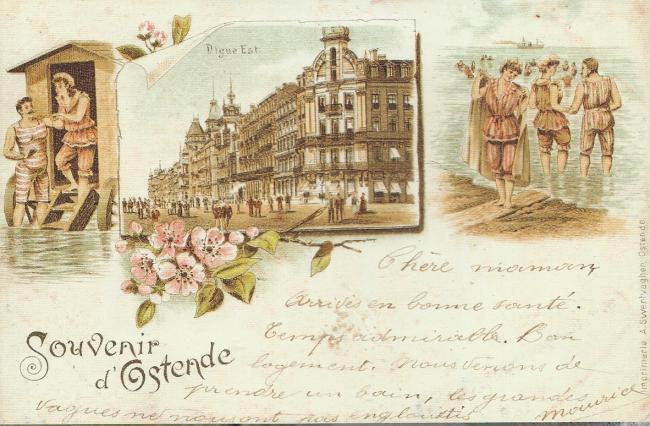 Digue Est.
Souvenir
d'Ostende
Chère maman,
Arrivés en bonne santé.
Temps admirable. Bon
logement. Nous venons de
prendre un bain, les grandes
vagues ne nous ont pas engloutis
Maurice
Imprimerie A. Swertvaegher, Ostende